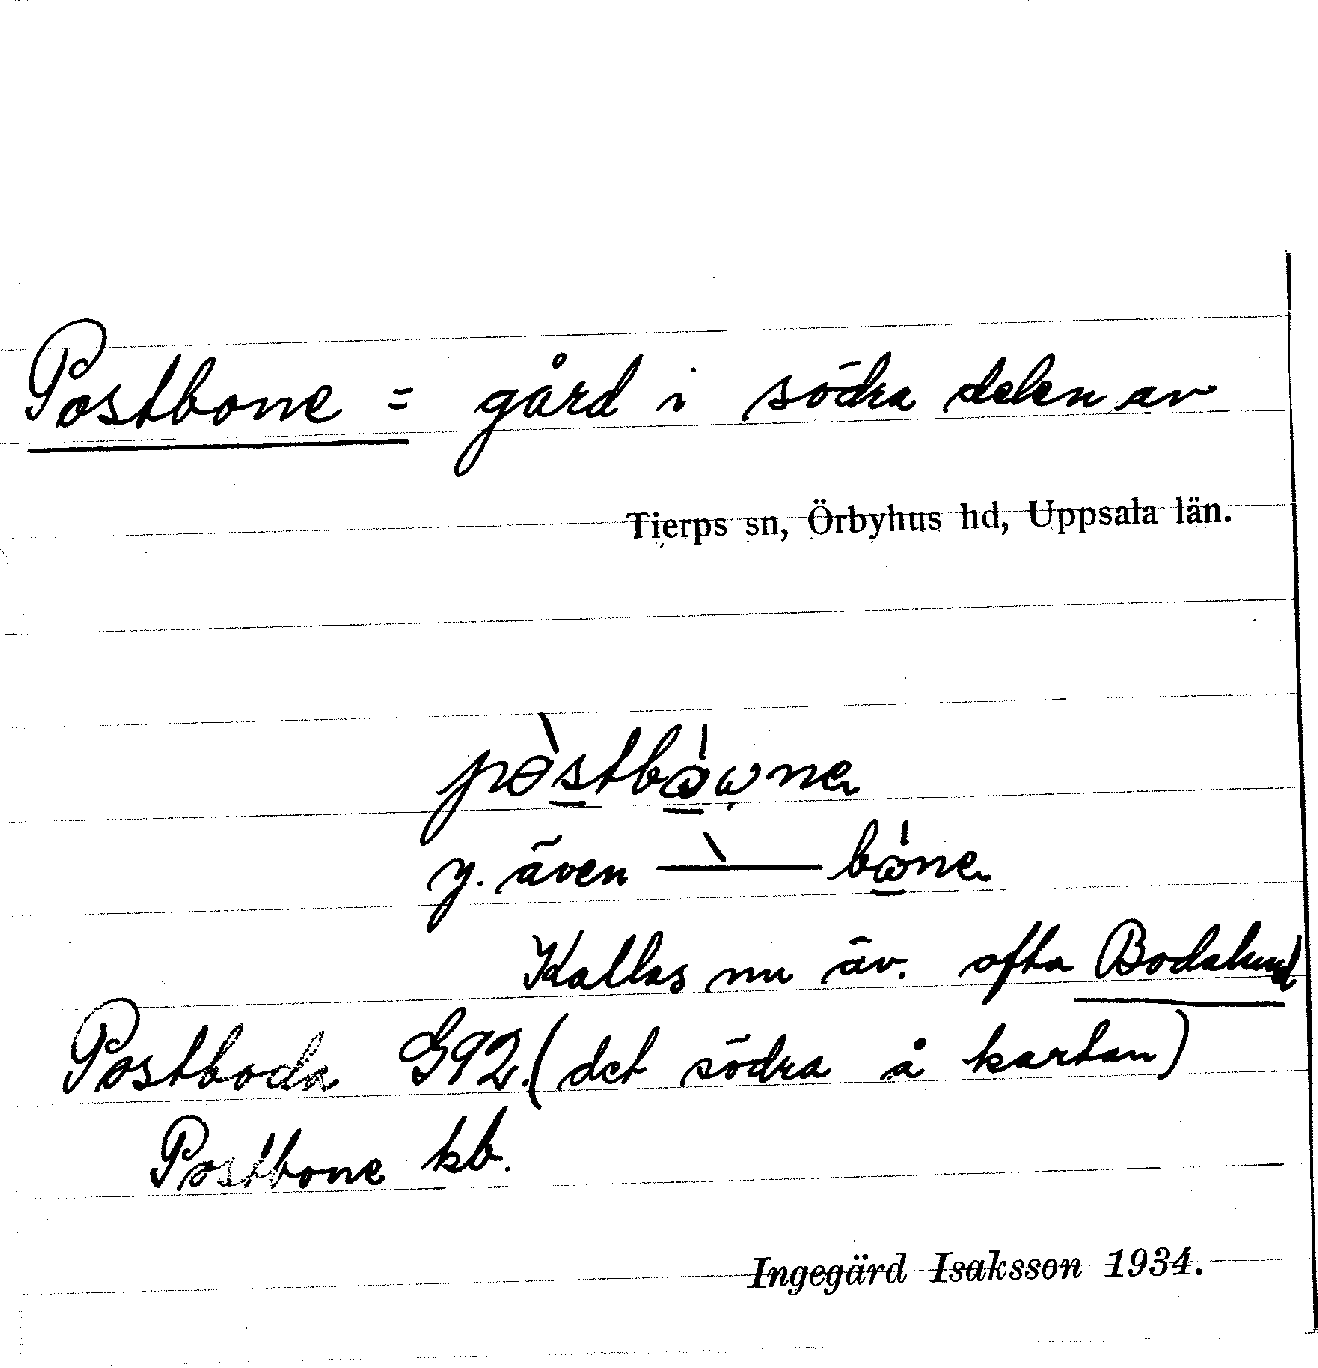 Postbone = gård i södra delen av
Tierps sn, Örbyhus hd, Uppsala län.
y. även
Kallas nu äv. ofta Bodalund
Postboda G92. (det södra å kartan)
Postbone kb.
Ingegärd Isaksson 1934.